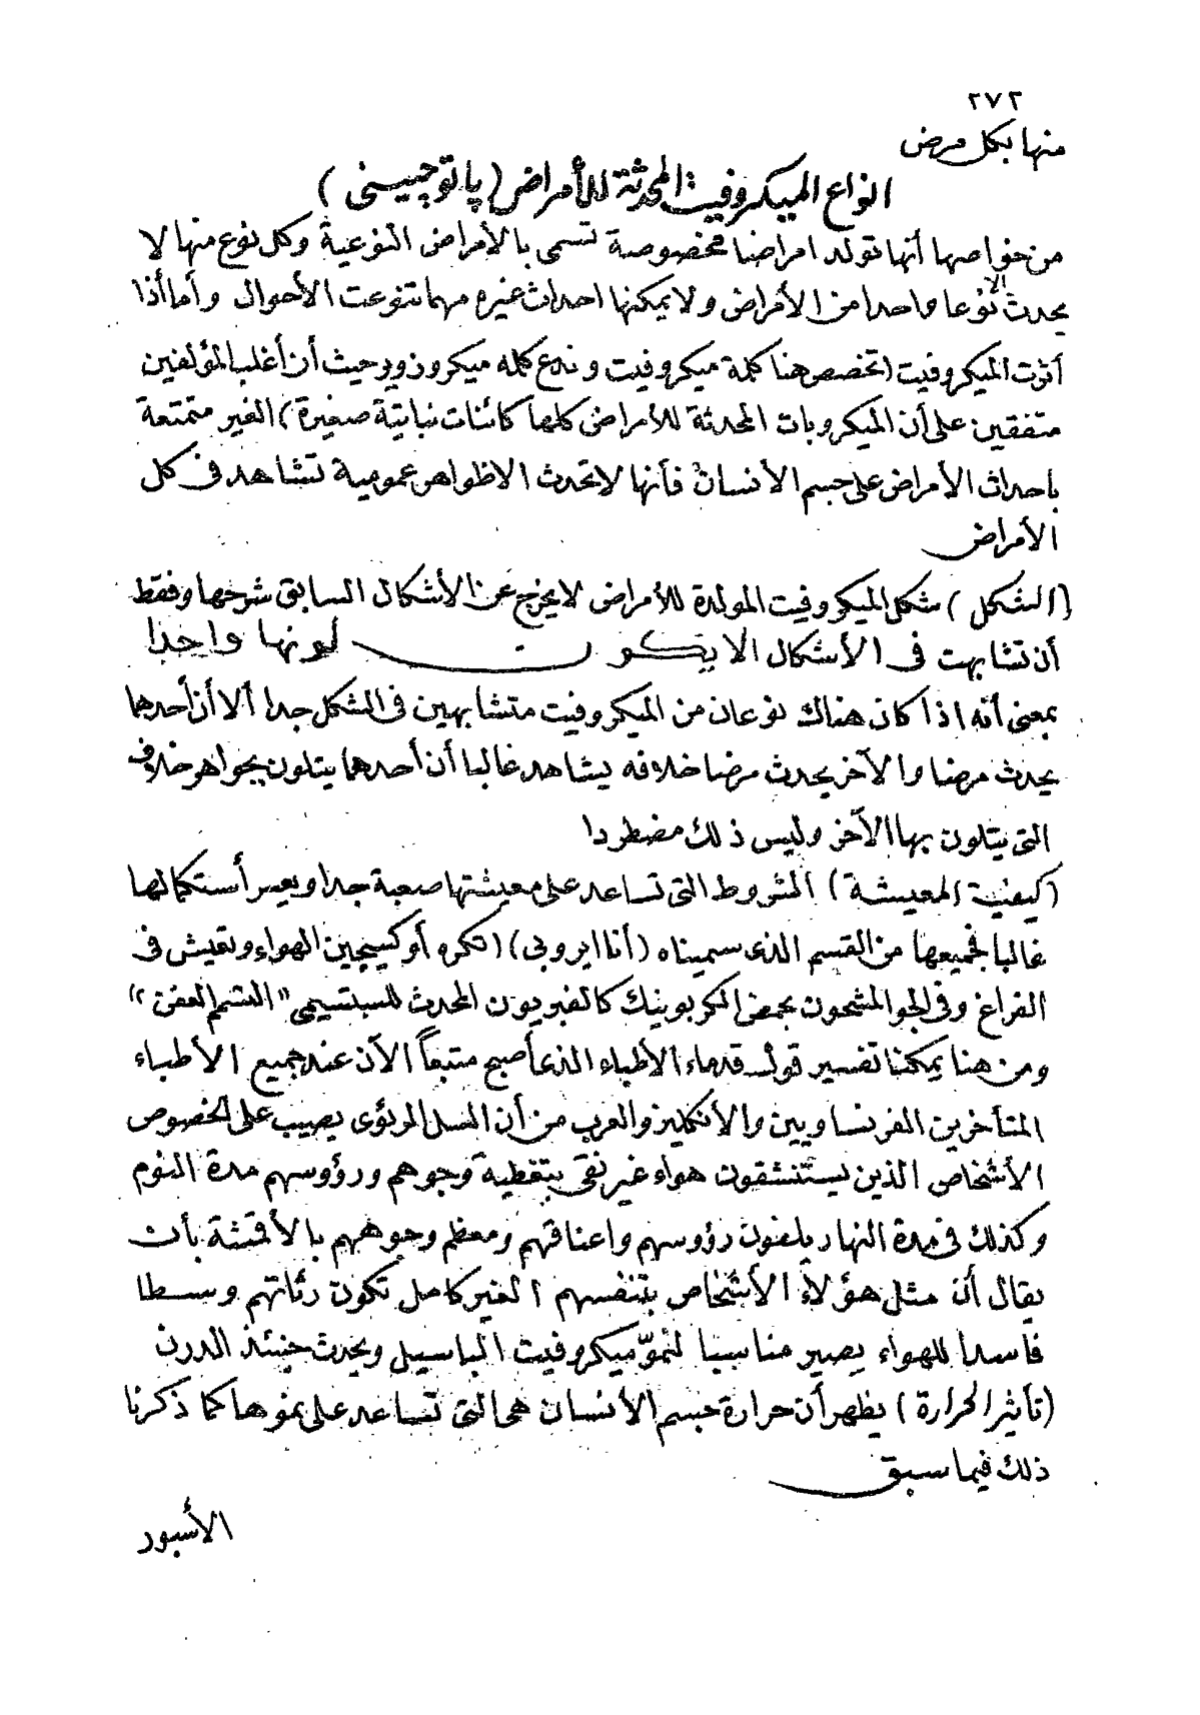 ٢٧٢
منها بكل مرض
انواع الميكروفيت المحدثة للأمراض (پاتوچيينى)
من خواصها أنها تولد امراضا مخصوصة تسمى بالأمراض النوعية وكل نوع منها لا
يحدث الا نوعا واحدا من الأمراض ولا يمكنها احداث غيره مهما تنوعت الأحوال وأما أذا
أثرت الميكروفيت (تخصص هنا كلمة ميكروفيت وندع كلمه ميكروزوير حيث أن أغلب المؤلفين
متفقين على أن الميكروبات المحدثة للأمراض كلها كائنات نباتية صغيرة) الغير متمتعة
باحداث الأمراض على جسم الأنسان فأنها لا تحدث الا ظواهر عمومية تشاهد فى كل
الأمراض
(الشكل) شكل الميكروفيت المولدة للأمراض لا يخرج عن الأشكال السابق شرحها وفقط
أن تشابهت فى الأشكال الا يكون لونها واحدا
بمعنى أنه اذا كان هناك نوعان من الميكروفيت متشابهين فى الشكل جدا ألا أن أحدهما
يحدث مرضا والآخر يحدث مرضا خلافه يشاهد غالبا أن أحدهما يتلون بجواهر خلاف
التى يتلون بها الآخر وليس ذلك مضطردا
(كيفية المعيشة) الشروط التى تساعد على معيشتها صعبة جدا ويعسر أستكمالها
غالبا فجميعها من القسم الذى سميناه (أنا ايروبى) (تكره أوكسيجين الهواء وتعيش فى
الفراغ وفى الجو المشحون بحمض الكربونيك كالفبريون المحدث للسبتسيمى "التسمم العفن"
ومن هنا يمكننا تفسير قول قدماء الأطباء الذى أصبح متبعاً الآن عند جميع الأطباء
المتأخرين الفرنساويين والأنكليز والعرب من أن السل الرئوى يصيب على الخصوص
الأشخاص الذين يستنشقون هواء غير نقى بتغطية وجوهم ورؤوسهم مدة النوم
وكذلك فى مدة النهار يلفون رؤوسهم واعناقهم ومعظم وجوههم بالأقمشة بأن
يقال أن مثل هؤلاء الأشخاص بتنفسهم الغير كامل تكون رئاتهم وسطا
فاسدا للهواء يصير مناسبا لنموّ ميكروفيت الباسيل ويحدث حينئذ الدرن
(تأثير الحرارة) يظهر أن حرارة جسم الأنسان هى التى تساعد على نموها كما ذكرنا
ذلك فيما سبق
الأسبور